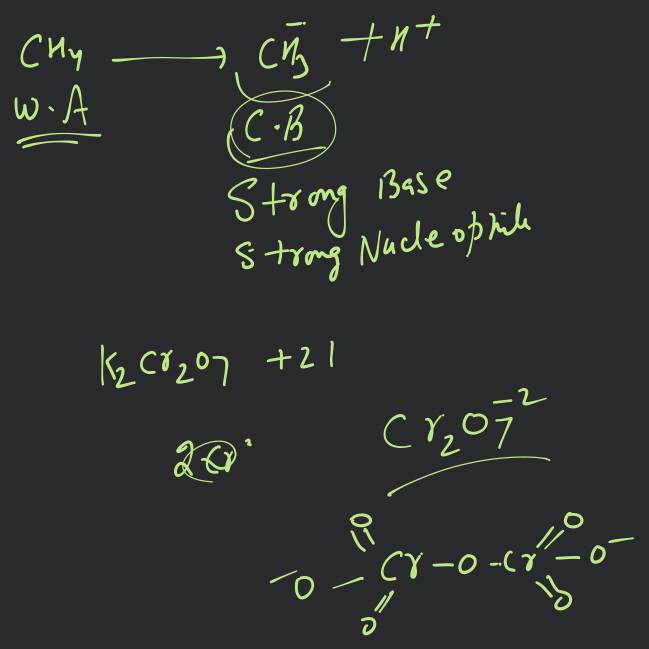 CH4 ⟶ CH3⁻ + H⁺
W.A
C.B
Strong Base
Strong Nucleophile
K2Cr2O7 + 21
Cr2O7⁻²
O O
⁻O – Cr – O – Cr – O⁻
O O